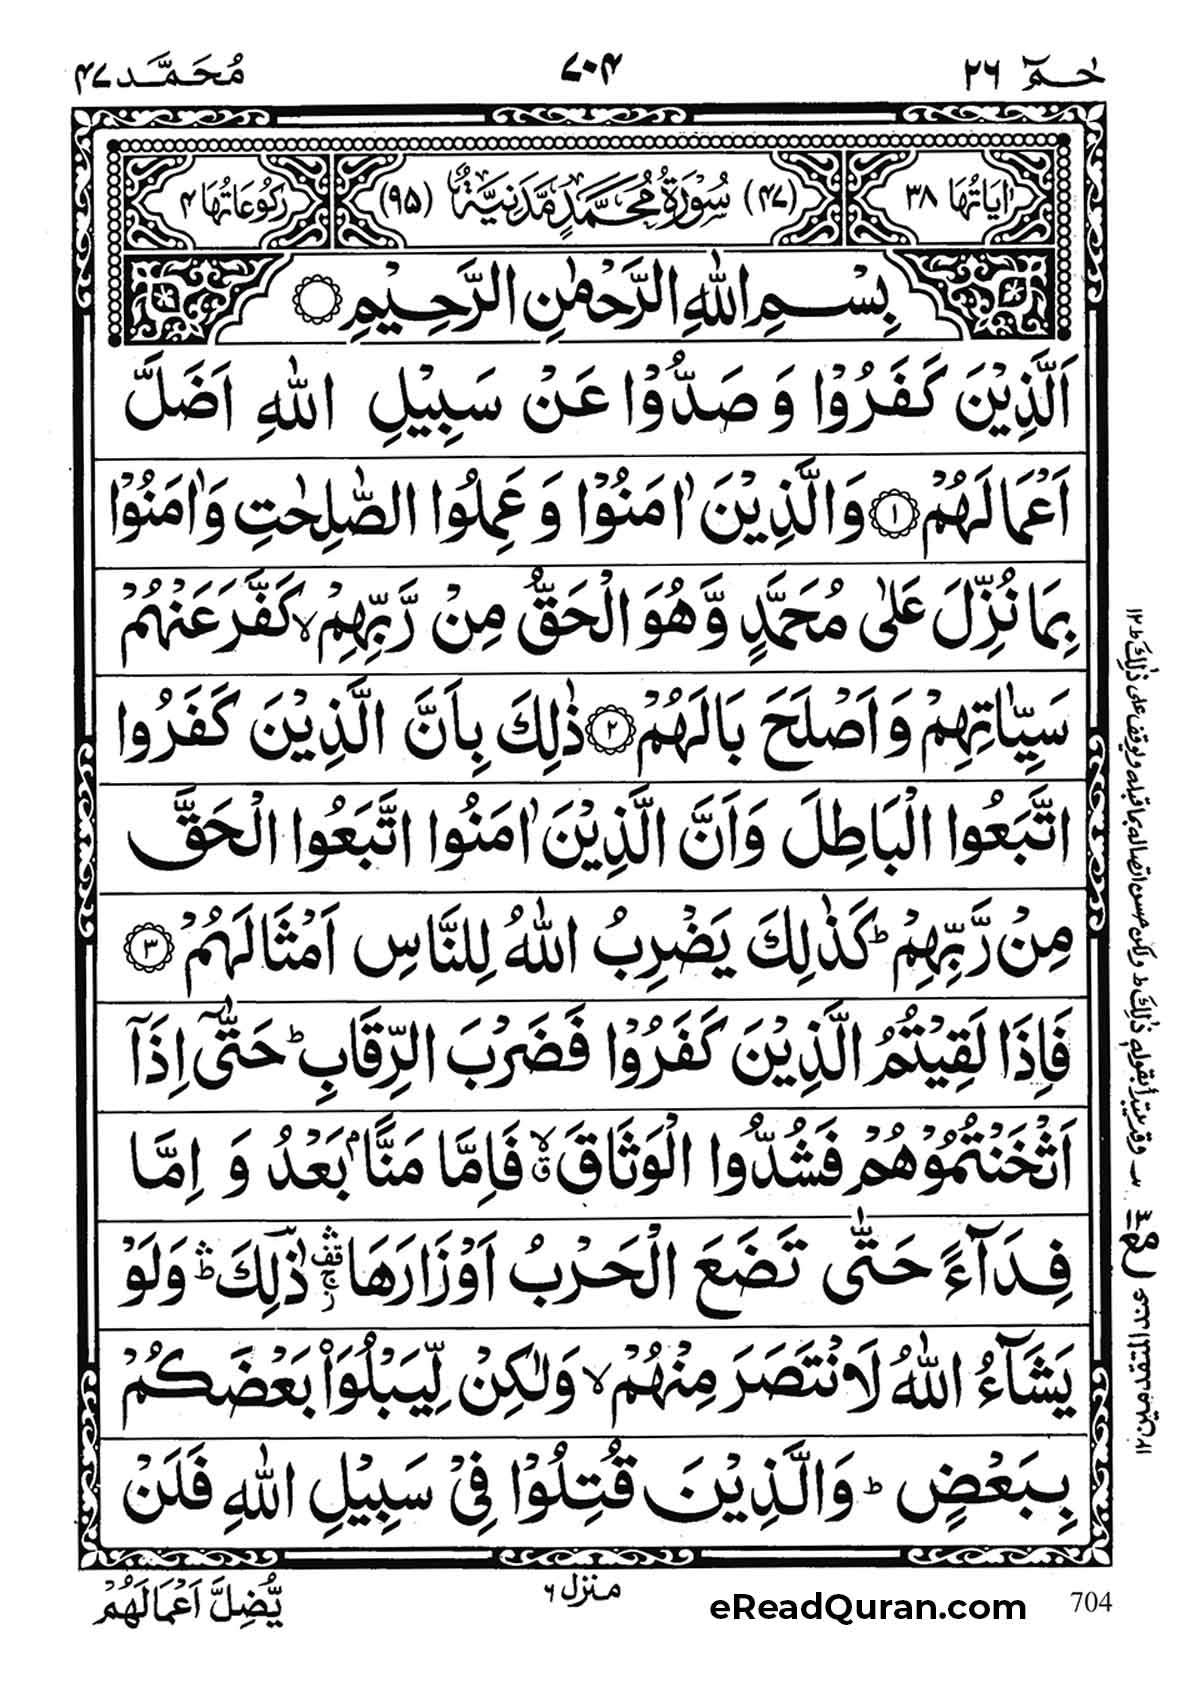 حٰمٓ ٢٦
٧٠٤
مُحَمَّد ٤٧
اٰيَاتُهَا ٣٨
(٤٧) سُوْرَةُ مُحَمَّدٍ مَّدَنِيَّةٌ (٩٥)
رُكُوْعَاتُهَا ٤
بِسْمِ اللّٰهِ الرَّحْمٰنِ الرَّحِيْمِ
اَلَّذِيْنَ كَفَرُوْا وَ صَدُّوْا عَنْ سَبِيْلِ اللّٰهِ اَضَلَّ
اَعْمَالَهُمْ ١ وَالَّذِيْنَ اٰمَنُوْا وَ عَمِلُوا الصّٰلِحٰتِ وَاٰمَنُوْا
بِمَا نُزِّلَ عَلٰى مُحَمَّدٍ وَّهُوَ الْحَقُّ مِنْ رَّبِّهِمْ ۙ كَفَّرَ عَنْهُمْ
سَيِّاٰتِهِمْ وَاَصْلَحَ بَالَهُمْ ٢ ذٰلِكَ بِاَنَّ الَّذِيْنَ كَفَرُوا
اتَّبَعُوا الْبَاطِلَ وَاَنَّ الَّذِيْنَ اٰمَنُوا اتَّبَعُوا الْحَقَّ
مِنْ رَّبِّهِمْ ؕ كَذٰلِكَ يَضْرِبُ اللّٰهُ لِلنَّاسِ اَمْثَالَهُمْ ٣
فَاِذَا لَقِيْتُمُ الَّذِيْنَ كَفَرُوْا فَضَرْبَ الرِّقَابِ ؕ حَتّٰۤى اِذَاۤ
اَثْخَنْتُمُوْهُمْ فَشُدُّوا الْوَثَاقَ ۙ فَاِمَّا مَنًّۢا بَعْدُ وَ اِمَّا
فِدَآءً حَتّٰى تَضَعَ الْحَرْبُ اَوْزَارَهَا ذٰلِكَ ۛؕ وَلَوْ
يَشَآءُ اللّٰهُ لَانْتَصَرَ مِنْهُمْ ۙ وَلٰكِنْ لِّيَبْلُوَا۟ بَعْضَكُمْ
بِبَعْضٍ ؕ وَالَّذِيْنَ قُتِلُوْا فِيْ سَبِيْلِ اللّٰهِ فَلَنْ
يُّضِلَّ اَعْمَالَهُمْ
منزل ٦
eReadQuran.com
704